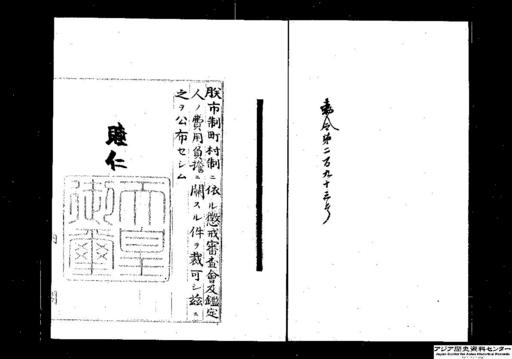 勅令第二百九十三号
朕市制町村制ニ依ル懲戒審査會及鑑定
人ノ費用負擔ニ關スル件ヲ裁可シ茲ニ
之ヲ公布セシム
睦仁
天皇御璽
アジア歴史資料センター
Japan Center for Asian Historical Records